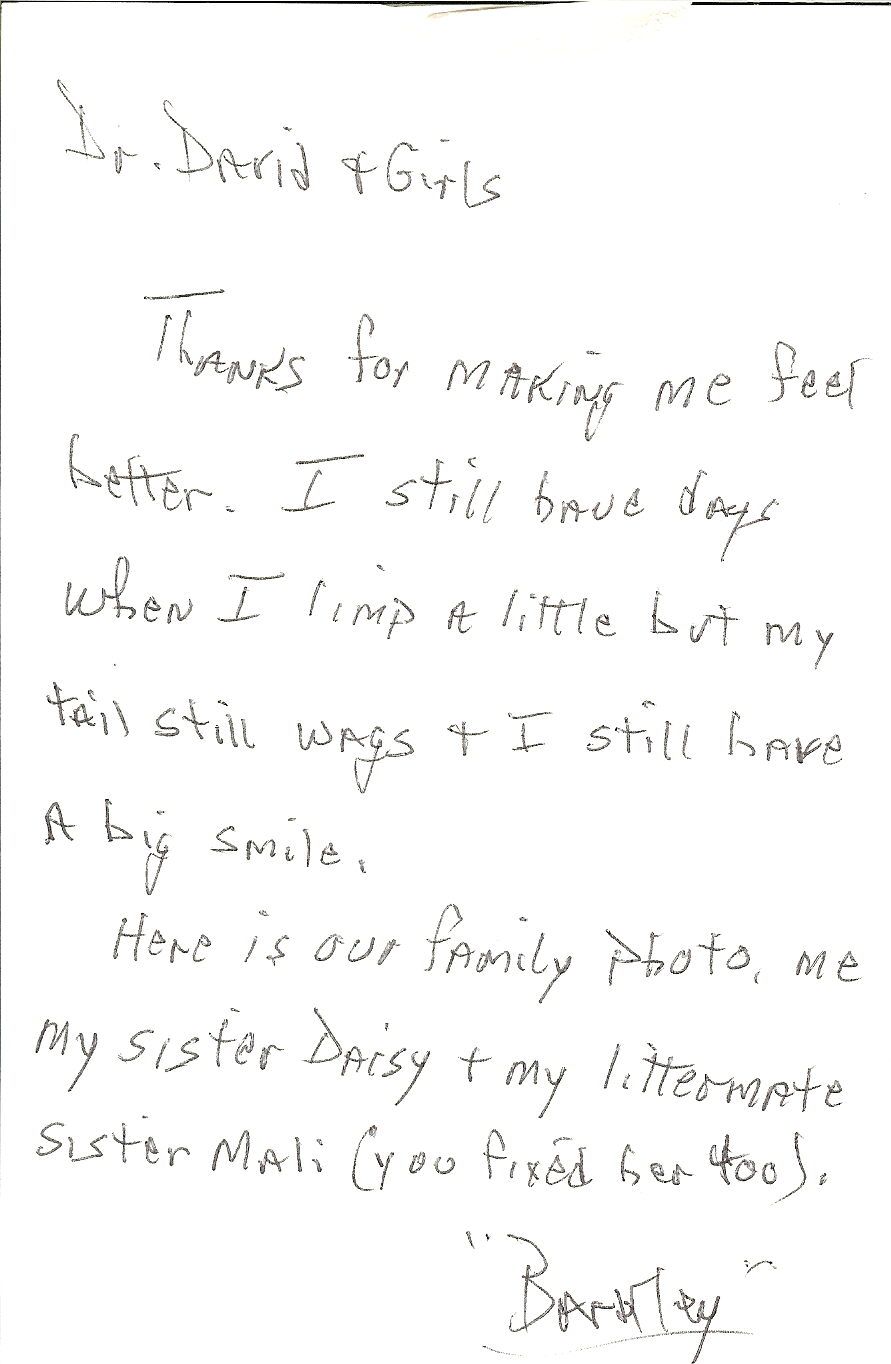 Dr. David + Girls
Thanks for making me feel
better. I still have days
when I limp a little but my
tail still wags + I still have
a big smile.
Here is our family photo, me
my sister Daisy + my littermate
sister Mali (you fixed her too).
"Barkley"